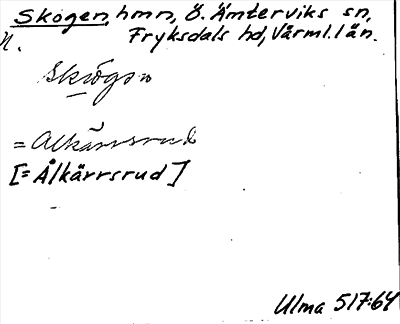 Skogen, hmn, Ö. Ämterviks sn,
n. Fryksdals hd, Värml. län.
Skogen
= Alkärrsrud
[= Ålkärrsrud]
Ulma 517:64